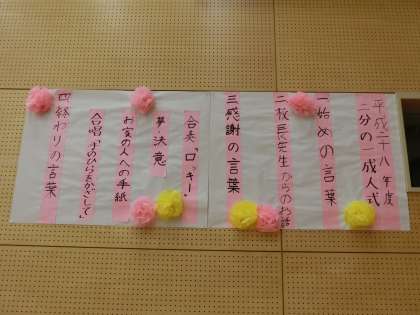 平成二十八年度
二分の一成人式
一始めの言葉
二校長先生からのお話
三感謝の言葉
合奏「ロッキー」
夢・決意
お家の人への手紙
合唱「手のひらをかざして」
四終わりの言葉